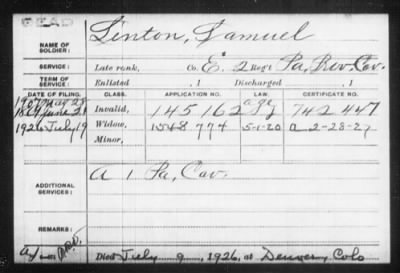 DEAD
NAME OF SOLDIER: Linton, Samuel
SERVICE: Late rank, Co. E. 2 Reg't Pa, Prov. Cav.
TERM OF SERVICE: Enlisted , 1 Discharged , 1
DATE OF FILING. CLASS. APPLICATION NO. LAW. CERTIFICATE NO.
1907 May 23
June 21 Invalid, 145 162 age 742 447
1926 July 19 Widow, 1548 774 5-1-20 a 2-28-27
Minor,
ADDITIONAL SERVICES: A 1 Pa, Cav.
REMARKS:
Died July 9, 1926, at Denver, Colo